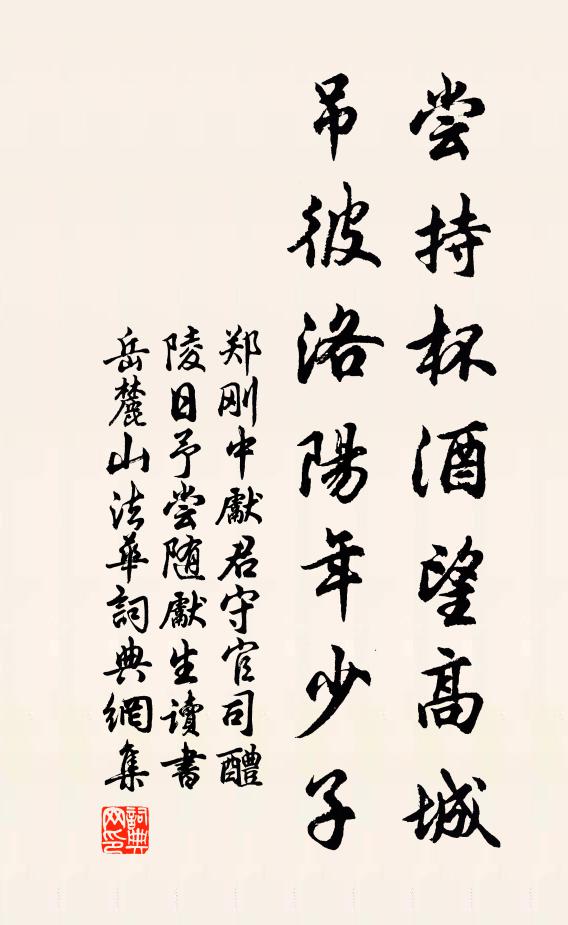 尝持杯酒望高城
吊彼洛陽年少子
郑刚中獻君守官司醴
陵日予尝随獻生讀書
岳麓山法華詞典網集
詞典网印